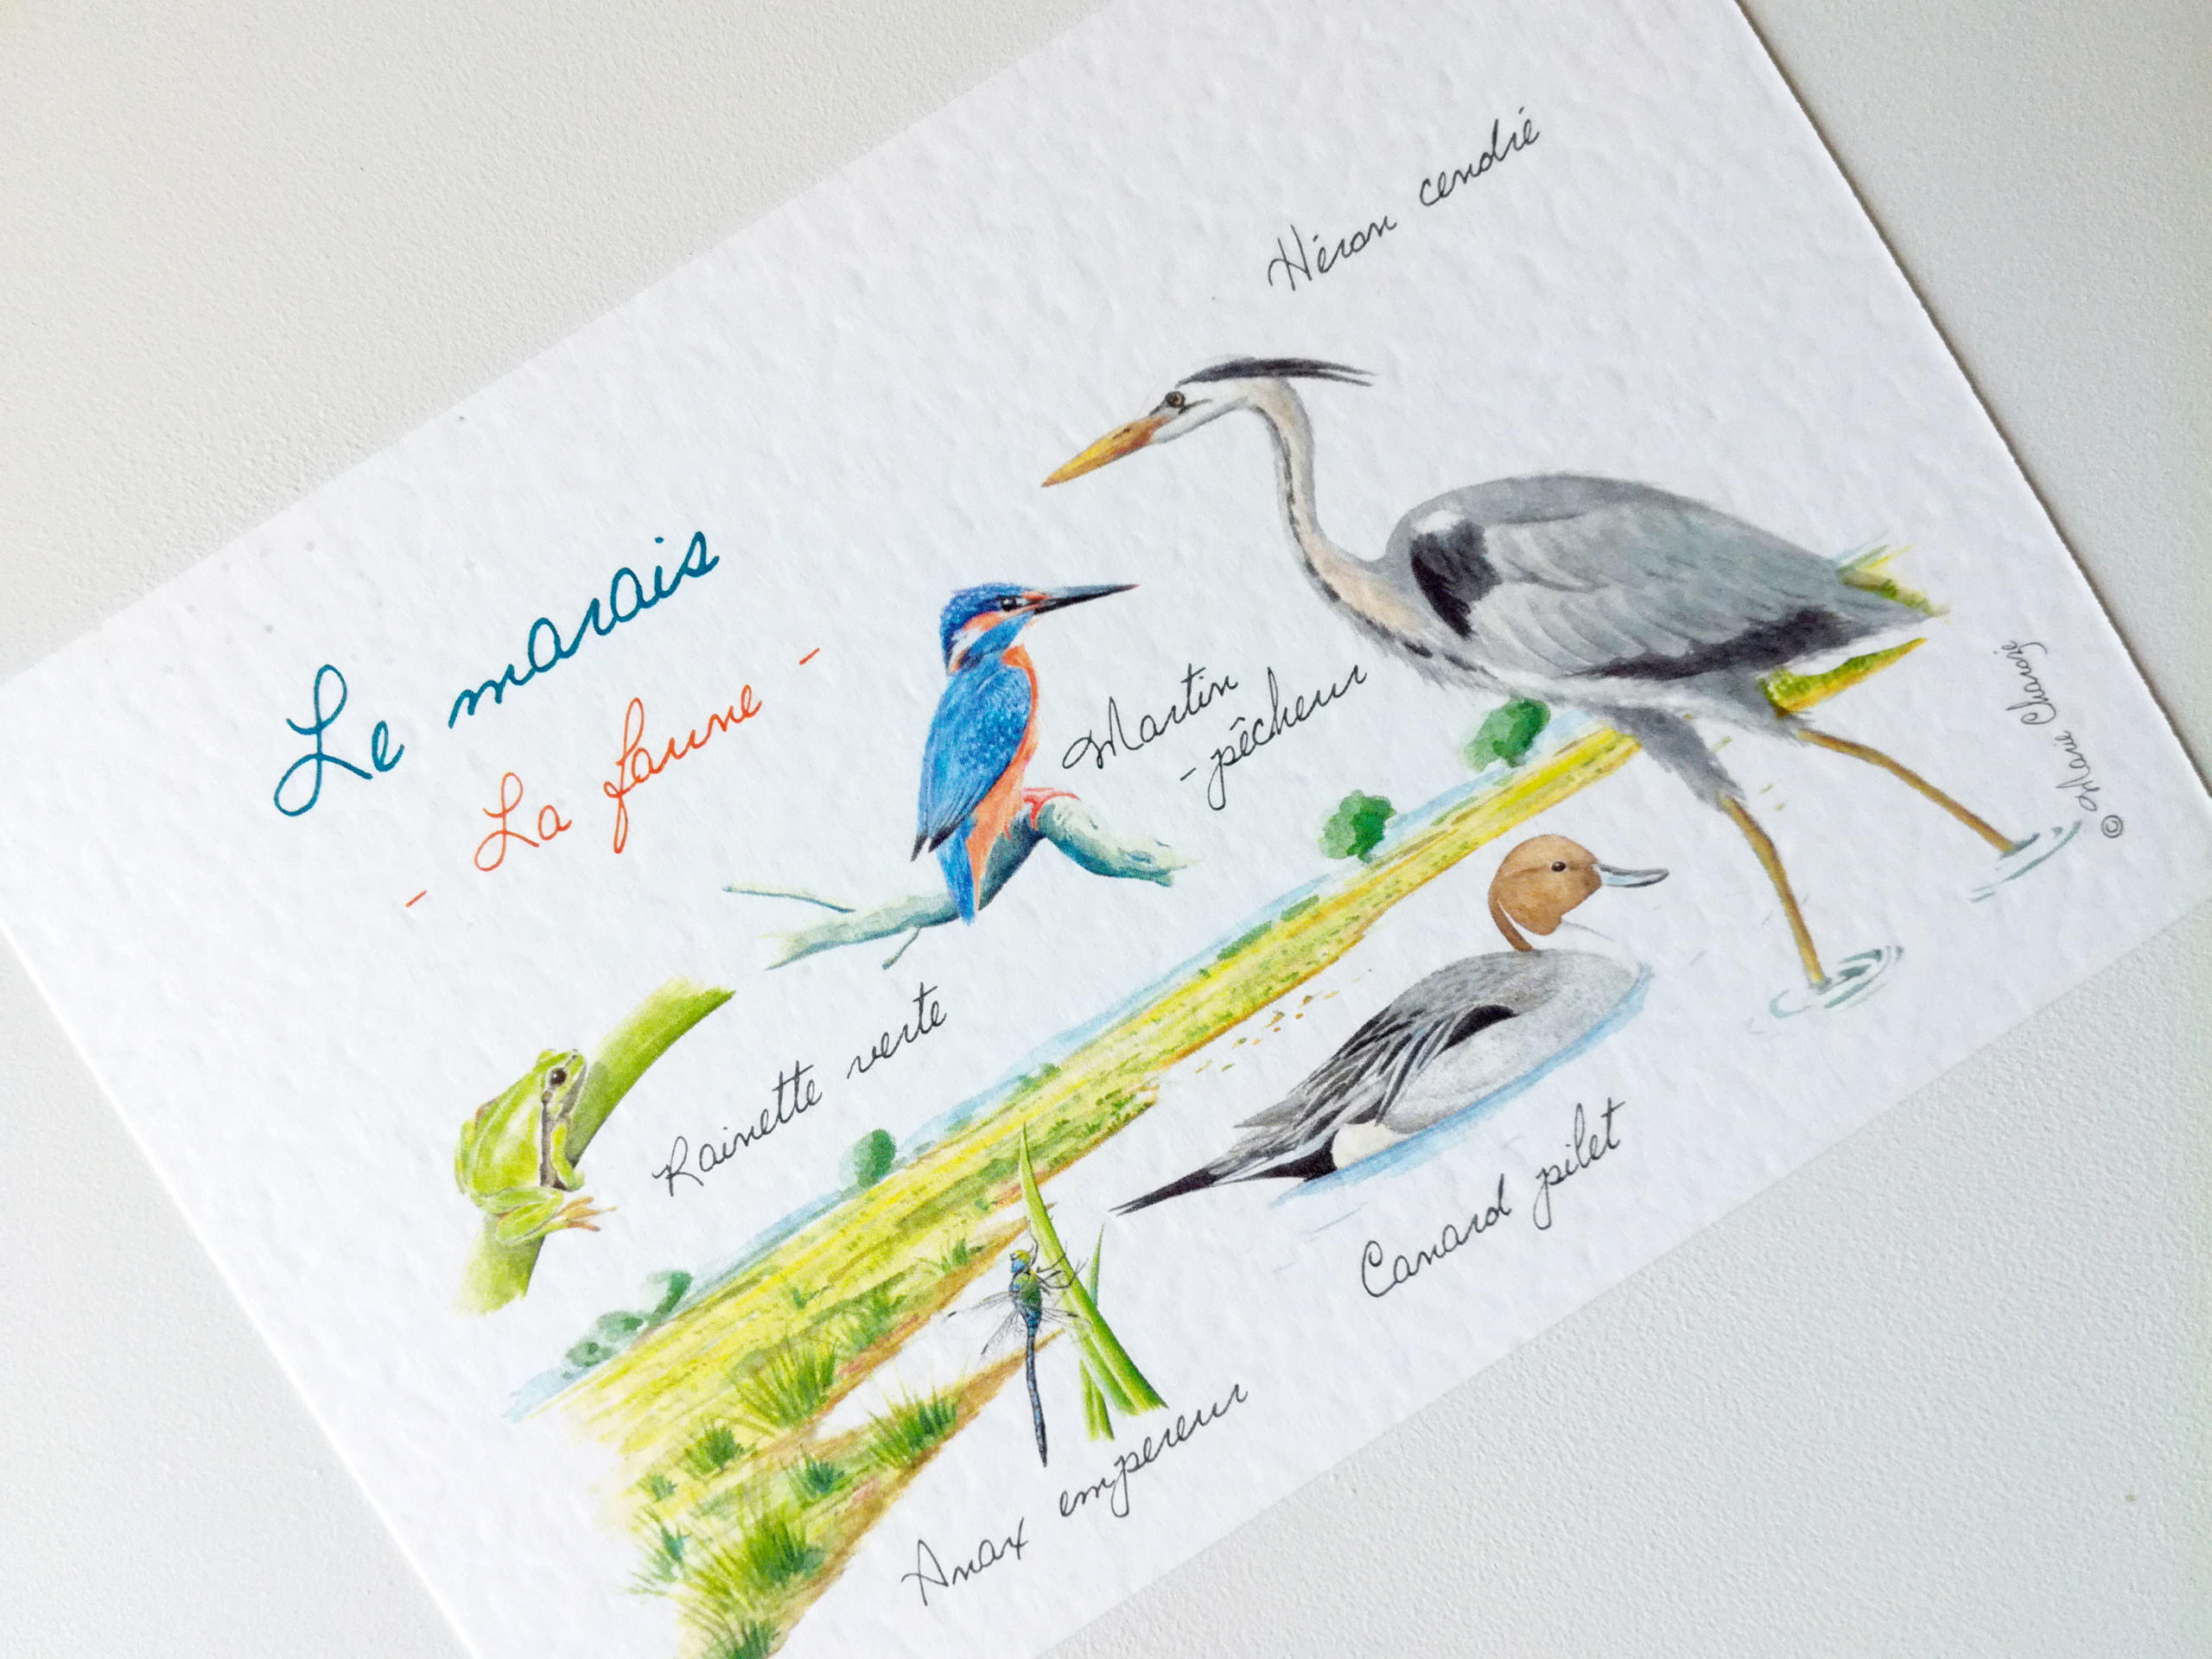 Le marais
- La faune -
Héron cendré
Martin
-pêcheur
Rainette verte
Canard pilet
Anax empereur
© Marie